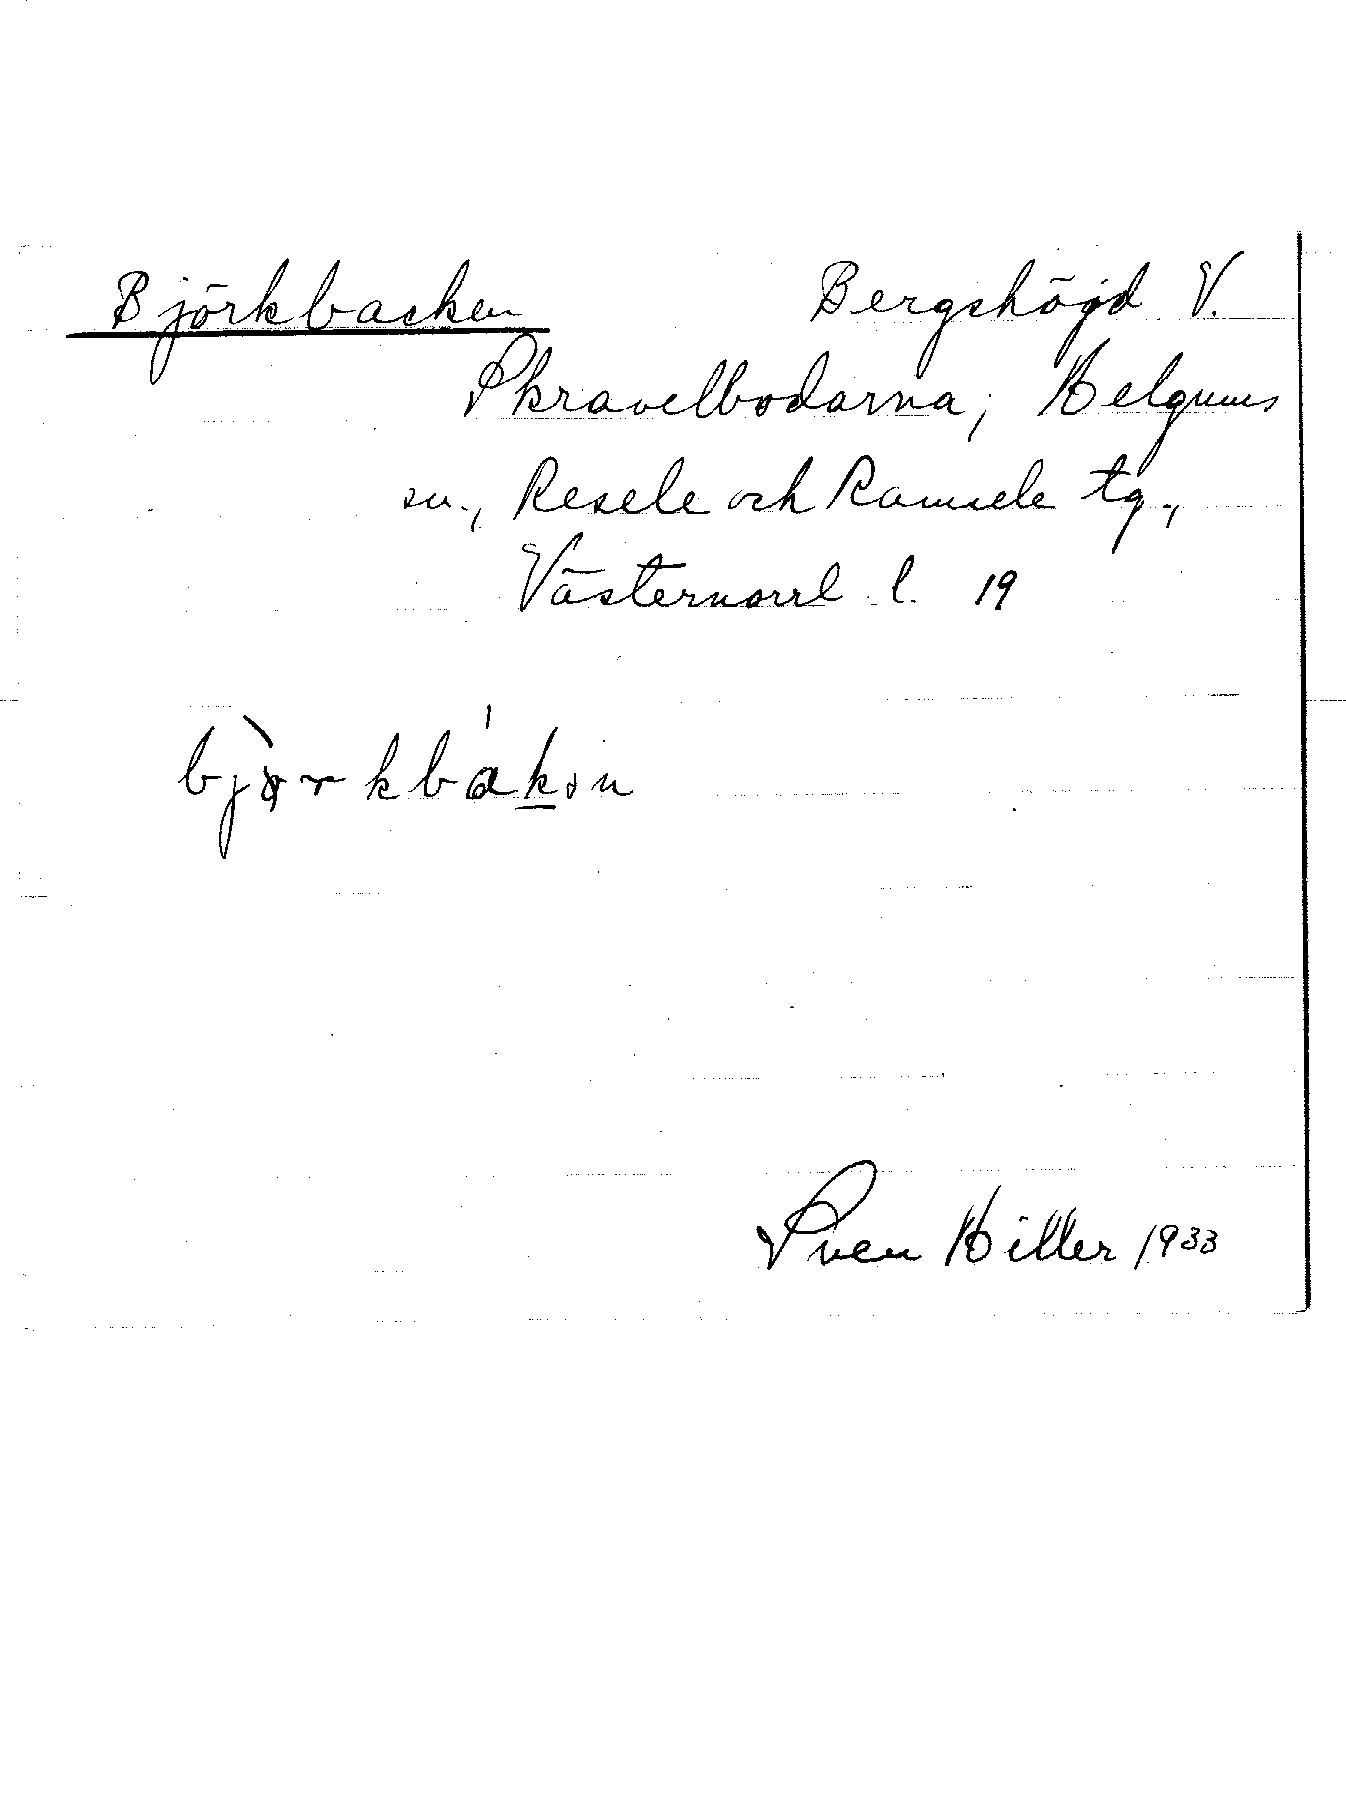 Björkbacken Bergshöjd V.
Skravelbodarna, Helgums
sn., Resele och Ramsele tg.,
Västernorrl l. 19
bjö̀rkbákən
Sven Hiller 1933